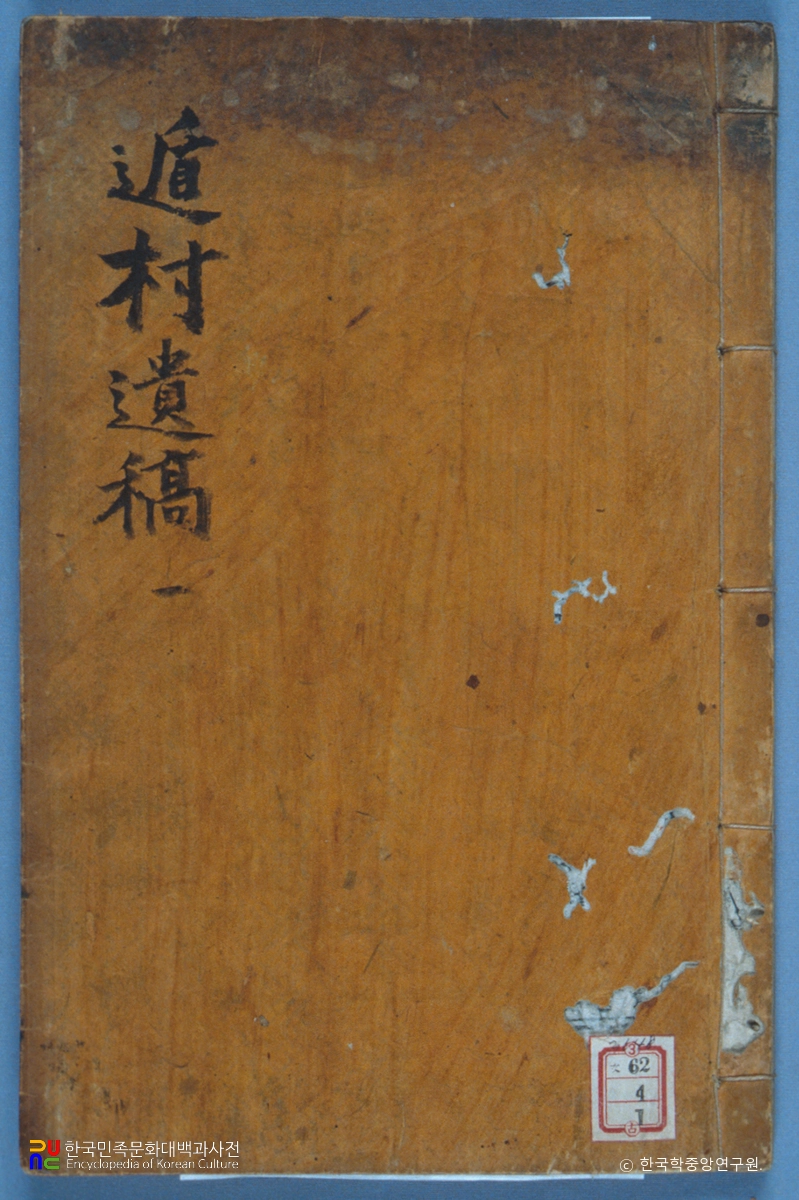 遁村遺稿 一
62
4
1
한국민족문화대백과사전
Encyclopedia of Korean Culture
© 한국학중앙연구원